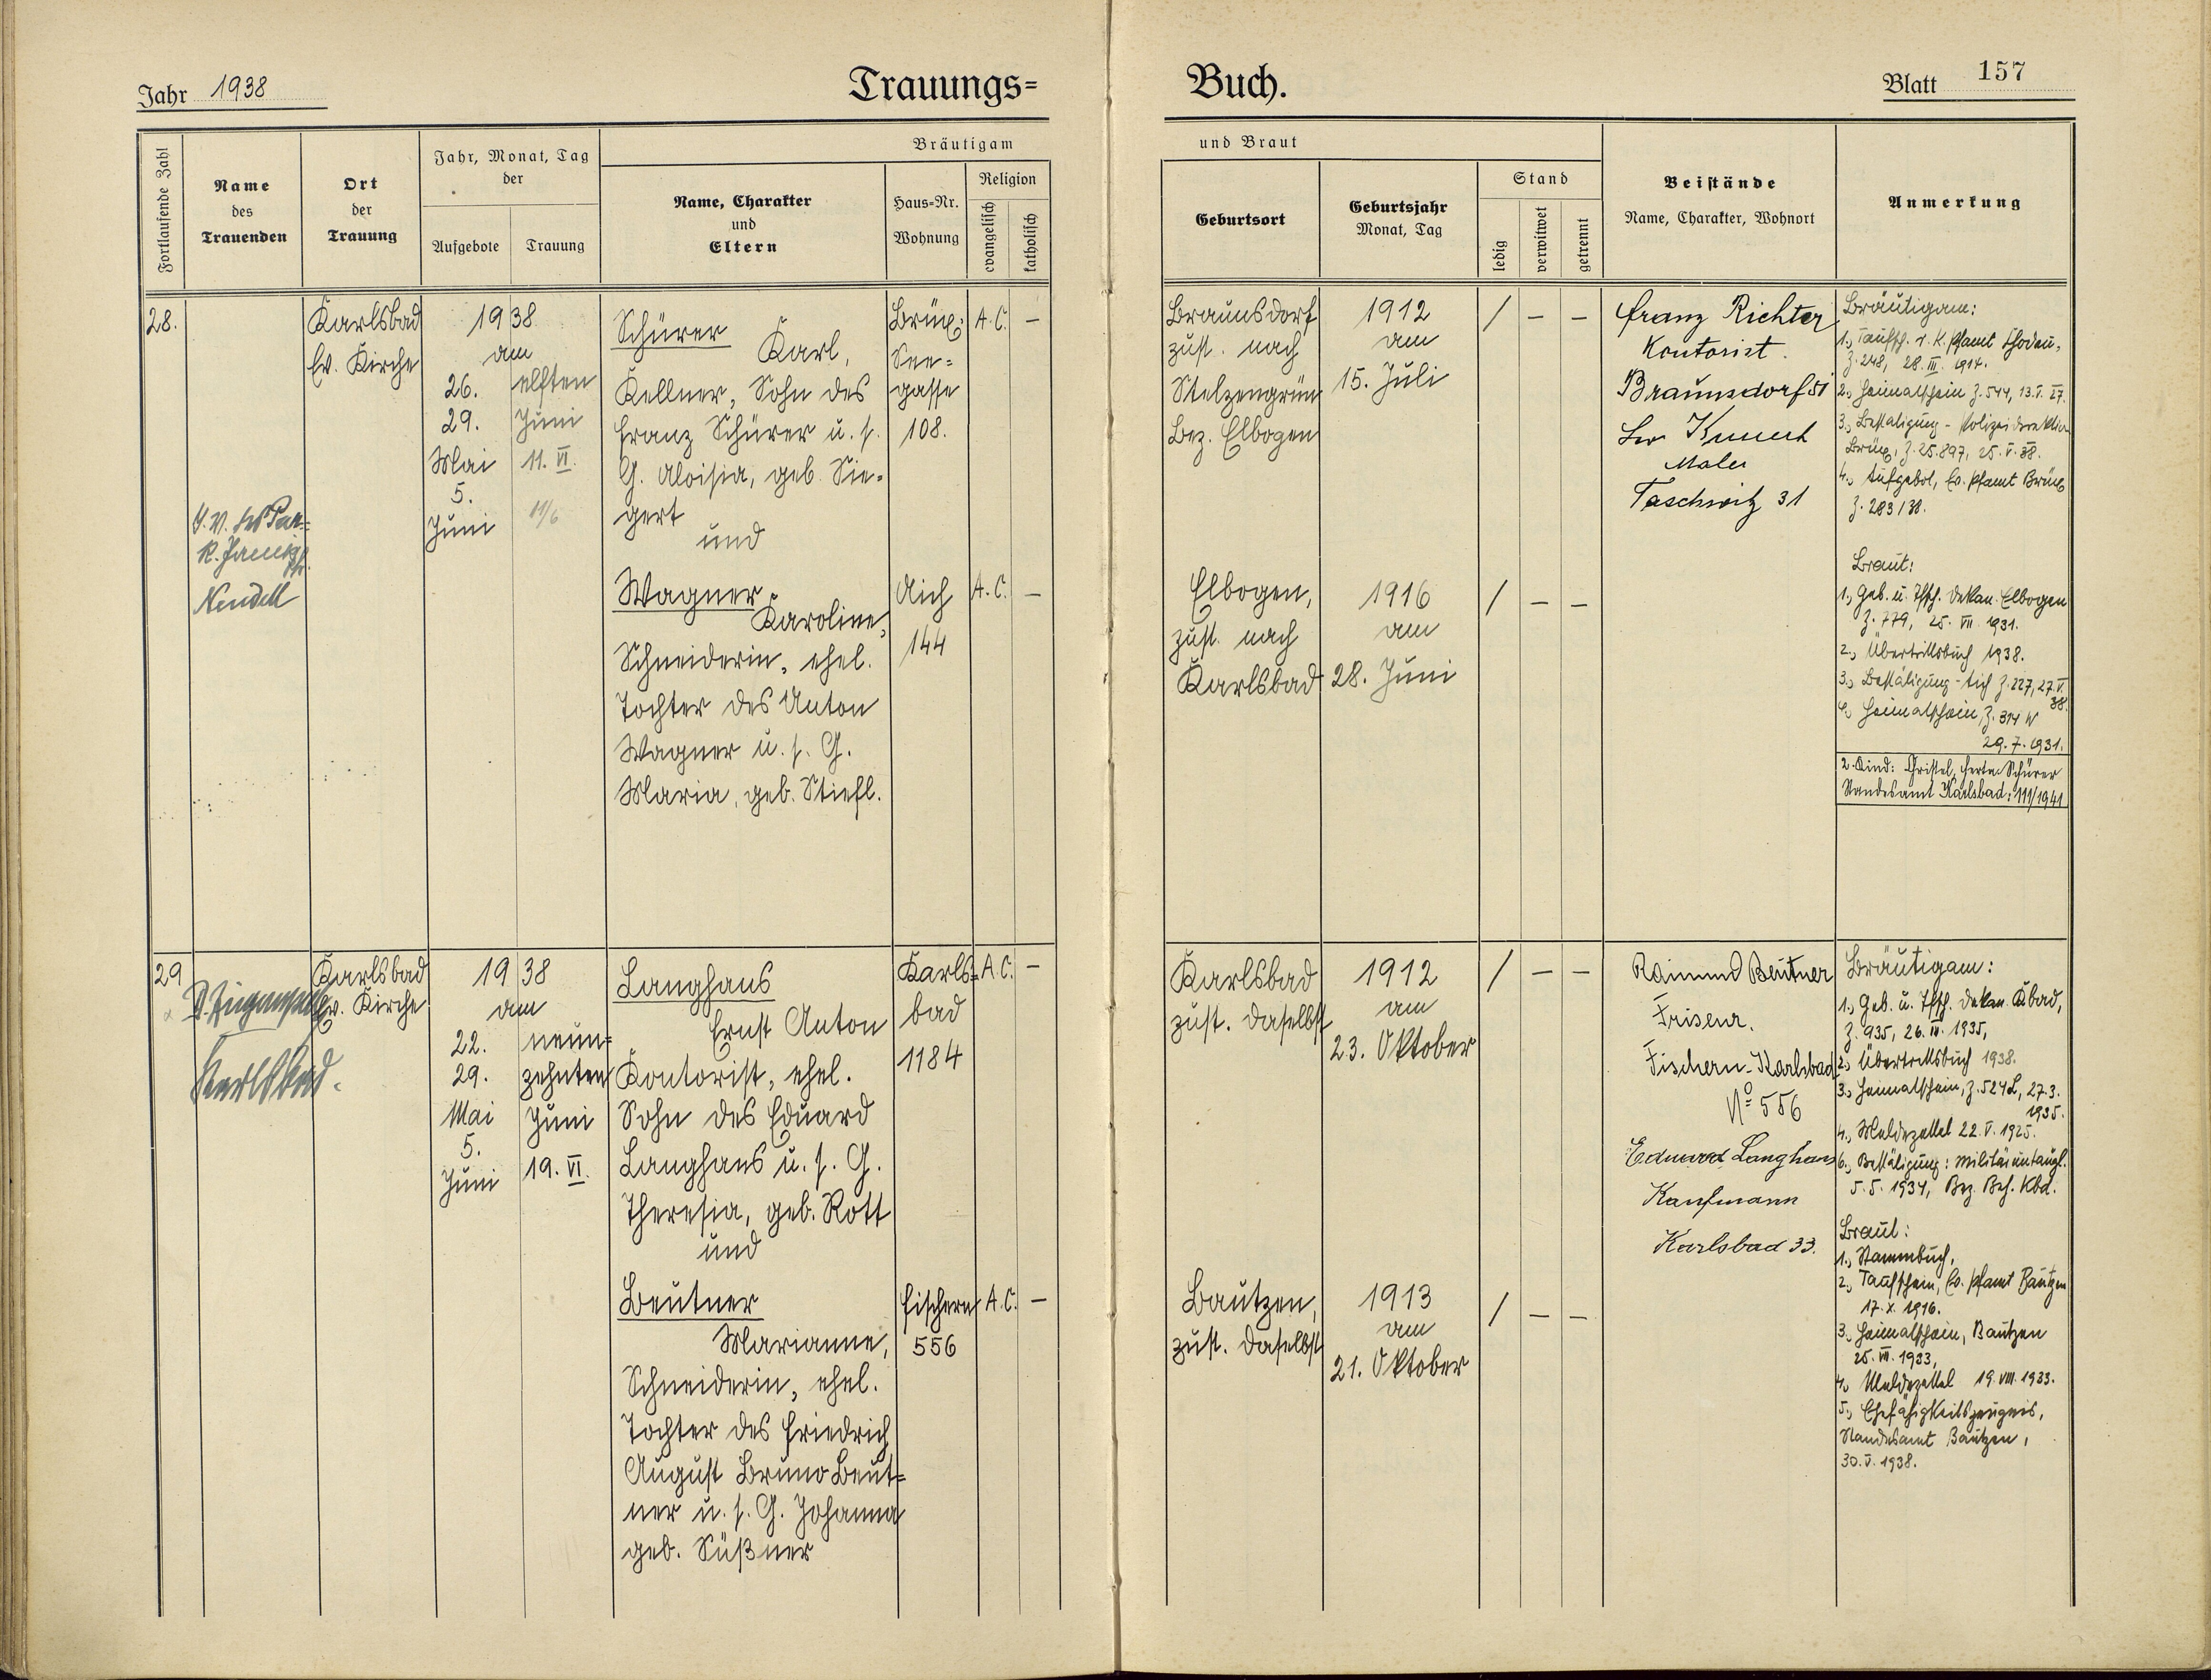 Jahr 1938
Trauungs=
Buch.
Blatt 157
Fortlaufende Zahl
Name
des
Trauenden
Ort
der
Trauung
Jahr, Monat, Tag
der
Aufgebote
Trauung
Bräutigam
Name, Charakter
und
Eltern
Haus=Nr.
Wohnung
Religion
evangelisch
katholisch
und Braut
Geburtsort
Geburtsjahr
Monat, Tag
Stand
ledig
verwitwet
getrennt
Beistände
Name, Charakter, Wohnort
Anmerkung
28.
Neudek
Karlsbad
Ev. Kirche
1938
am
26.
29.
Mai
5.
Juni
elften
Juni
11. VI.
11/6
Schürer
Karl,
Kellner, Sohn des
Franz Schürer u. s.
G. Aloisia, geb. Sie=
gert
und
Brüx,
See=
gasse
108.
A. C. –
Braunsdorf
zust. nach
Stelzengrün
Bez. Elbogen
1912
am
15. Juli
/ – –
Franz Richter
Kontorist.
Braunsdorf 51
Kunert
Maler
Taschwitz 31
Bräutigam:
1., Taufsch. r. K. Pfamt Chodau,
Z. 248, 28. III. 1914.
2., Heimatschein Z. 544, 13. V. 27.
3., Bestätigung - Polizeidirektion
Brüx, Z. 25.897, 25. V. 38.
4., Aufgebot, Ev. Pfamt Brüx
Z. 283/38.
Wagner
Karoline,
Schneiderin, ehel.
Tochter des Anton
Wagner u. s. G.
Maria, geb. Stiefl.
Aich
144
A. C. –
Elbogen,
zust. nach
Karlsbad
1916
am
28. Juni
/ – –
Braut:
1., Geb. u. Tfsch. Dekan. Elbogen
Z. 779, 25. VII. 1931.
2., Übertrittsbuch 1938.
3., Bestätigung - Aich Z. 227, 27. V.
38.
4., Heimatschein, Z. 314 W
29. 7. 1931.
2. Kind: Christel Herta Schürer
Standesamt Karlsbad: 111/1941
29
Karlsbad.
Karlsbad
Ev. Kirche
1938
am
22.
29.
Mai
5.
Juni
neun=
zehnten
Juni
19. VI.
Langhans
Ernst Anton
Kontorist, ehel.
Sohn des Eduard
Langhans u. s. G.
Theresia, geb. Rott
und
Karls=
bad
1184
A. C. –
Karlsbad
zust. daselbst
1912
am
23. Oktober
/ – –
Raimund Beutner
Friseur.
Fischern-Karlsbad
No 556
Eduard Langhans
Kaufmann
Karlsbad 33.
Bräutigam:
1., Geb. u. Tfsch. Dekan. Kbad,
Z. 935, 26. III. 1935,
2., Übertrittsbuch 1938.
3., Heimatschein, Z. 524 L, 27. 3.
1935.
4., Meldezettel 22. V. 1925.
6., Bestätigung: Militäruntaugl.
5. 5. 1934, Bez. Beh. Kbd.
Beutner
Marianne,
Schneiderin, ehel.
Tochter des Friedrich
August Bruno Beut=
ner u. s. G. Johanna
geb. Süßner
Fischern
556
A. C. –
Bautzen,
zust. daselbst
1913
am
21. Oktober
/ – –
Braut:
1., Stammbuch,
2., Taufschein, Ev. Pfamt Bautzen
17. X. 1916.
3., Heimatschein, Bautzen
25. VII. 1933,
4., Meldezettel 19. VIII. 1933.
5., Ehefähigkeitszeugnis,
Standesamt Bautzen,
30. V. 1938.